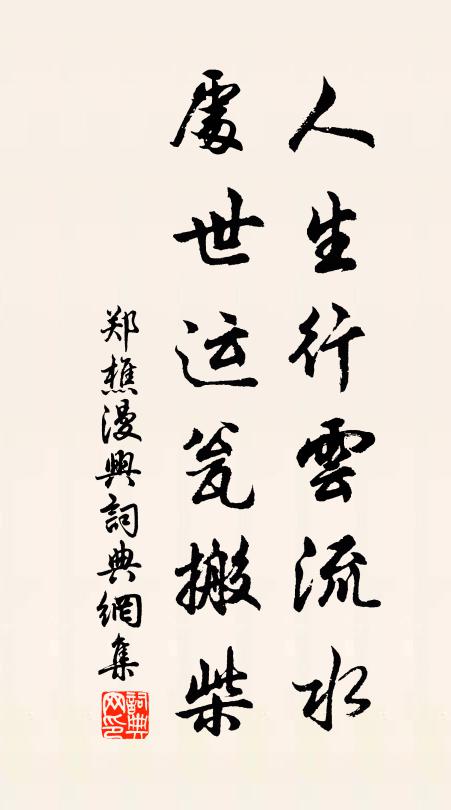 人生行雲流水
處世运瓮搬柴
郑樵漫興詞典網集
詞典网印